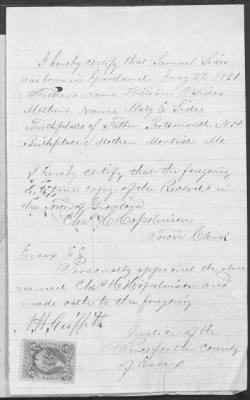 I hereby certify that Samuel Sides
was born in Groveland Jany 22 1851
Fathers Name William P Sides
Mothers Name Mary E Sides
Birthplace of Father Portsmouth N H
Birthplace of Mother Montville Me
I hereby certify that the foregoing
is a true copy of the Records in
the Town of Groveland
Chas H Hopkinson
Town Clerk
Essex SS
Personally appeared the above
named Chas H Hopkinson and
made oath to the foregoing
N. H. Griffith
Justice of the
Peace for the county
of Essex